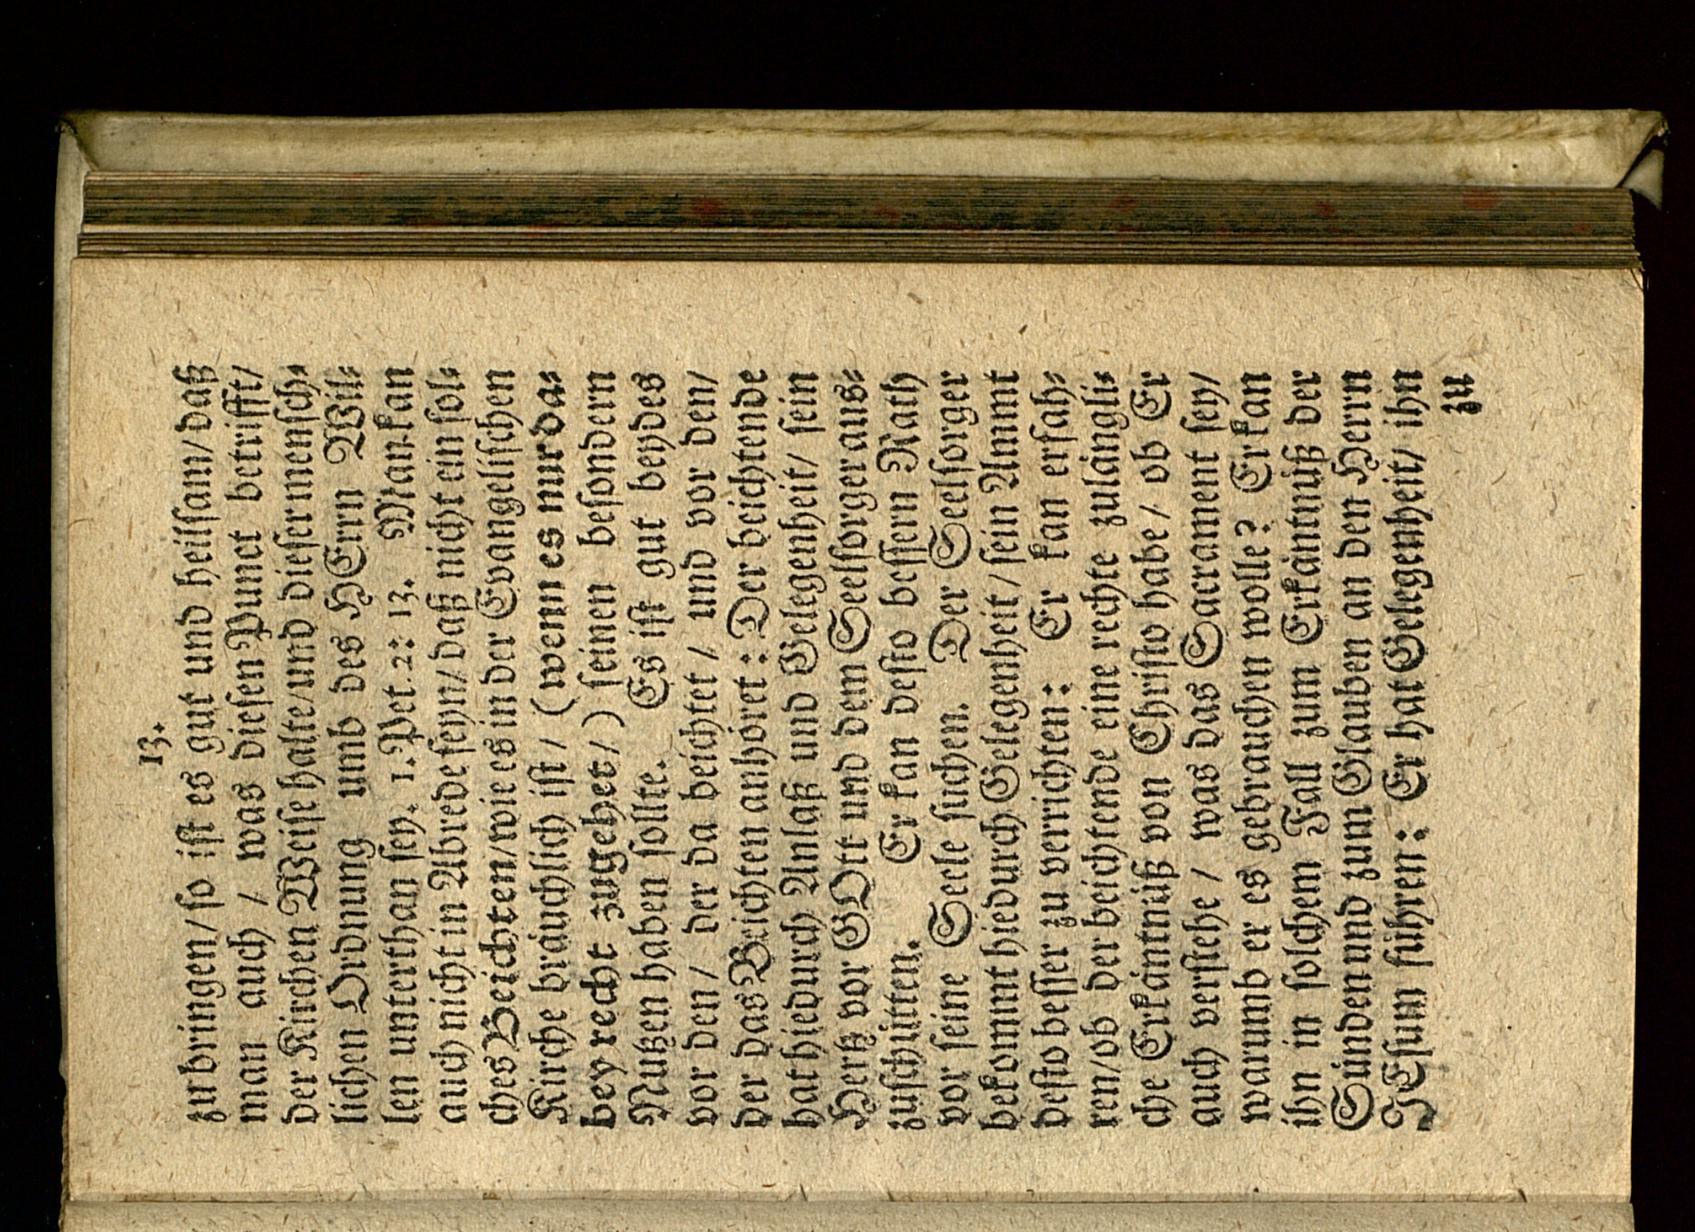 13.
zu bringen/ so ist es gut und heilsam/ daß
man auch / was diesen Punct betrifft/
der Kirchen Weise halte/ und dieser mensch⸗
lichen Ordnung umb des HErrn Wil⸗
len unterthan sey. 1. Pet. 2: 13. Man kan
auch nicht in Abrede seyn/ daß nicht ein sol⸗
ches Beichten/ wie es in der Evangelischen
Kirche bräuchlich ist / ( wenn es nur da⸗
bey recht zugehet/ ) seinen besondern
Nutzen haben sollte. Es ist gut beydes
vor den / der da beichtet / und vor den/
der das Beichten anhöret: Der beichtende
hat hiedurch Anlaß und Gelegenheit/ sein
Hertz vor GOtt und dem Seelsorger aus⸗
zuschütten. Er kan desto bessern Rath
vor seine Seele suchen. Der Seelsorger
bekommt hiedurch Gelegenheit / sein Ammt
desto besser zu verrichten: Er kan erfah⸗
ren/ ob der beichtende eine rechte zulängli⸗
che Erkäntnüß von Christo habe / ob Er
auch verstehe / was das Sacrament sey/
warumb er es gebrauchen wolle? Er kan
ihn in solchem Fall zum Erkäntnüß der
Sünden und zum Glauben an den Herrn
JEsum führen: Er hat Gelegenheit/ ihn
zu